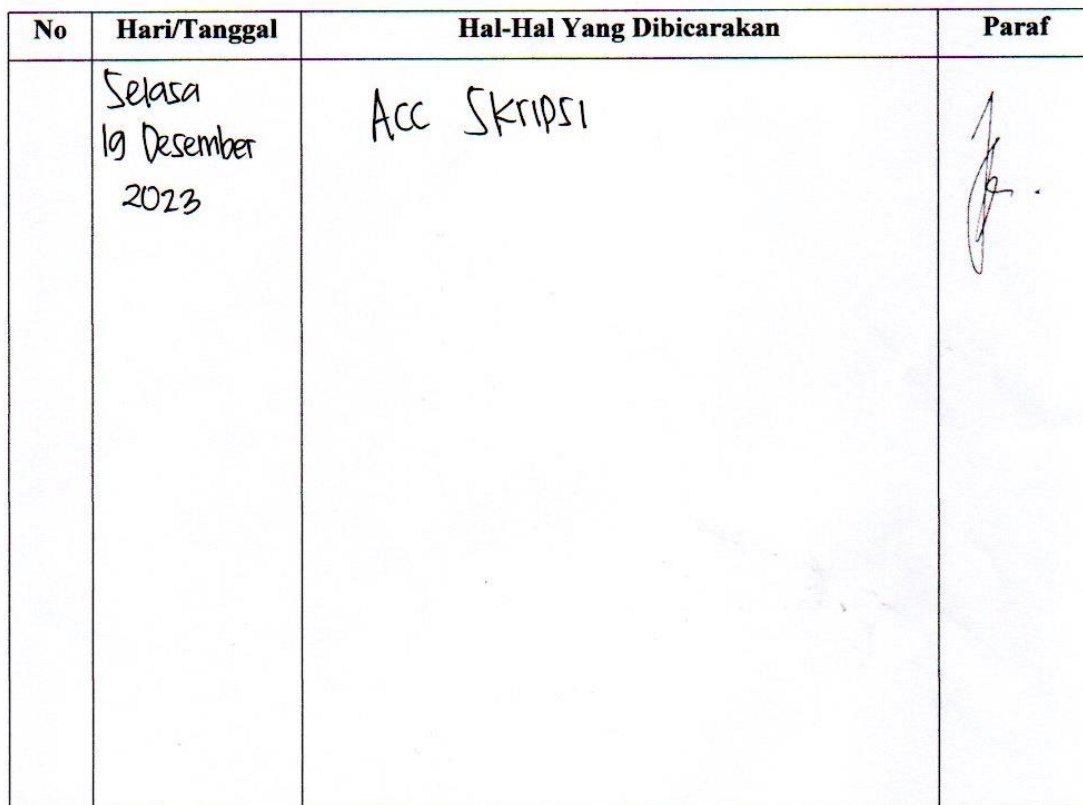 No Hari/Tanggal Hal-Hal Yang Dibicarakan Paraf
Selasa
19 Desember
2023
Acc Skripsi